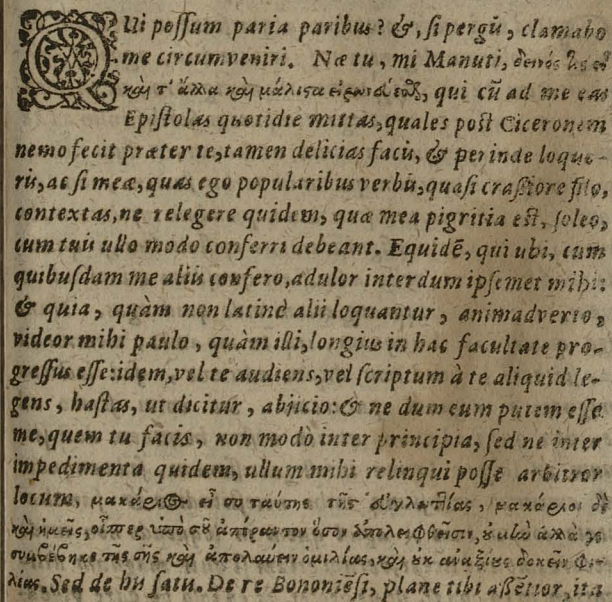 QUi possum paria paribus? &, si pergũ, clamabo
me circumveniri. Næ tu, mi Manuti, δεινός
καὶ τ' ἄλλα καὶ μάλιςα qui cũ ad me eas
Epistolas quotidie mittas, quales post Ciceronem
nemo fecit præter te, tamen delicias facis, & perinde loque-
ris, ac si meæ, quas ego popularibus verbis, quasi crassiore filo,
contextas, ne relegere quidem, quæ mea pigritia est, soleo,
cum tuis ullo modo conferri debeant. Equidē, qui ubi, cum
quibusdam me aliis confero, adulor interdum ipsemet mihi:
& quia, quàm non latinè alii loquantur, animadverto,
videor mihi paulo, quàm illi, longius in hac facultate pro-
gressus esse: idem, vel te audiens, vel scriptum à te aliquid le-
gens, hastas, ut dicitur, abjicio: & ne dum eum putem esse
me, quem tu facis, non modo inter principia, sed ne inter
impedimenta quidem, ullum mihi relinqui posse arbitror
locum, μακάριος εἶ συ ταύτης τῆς μακάριοι δὲ
καὶ ἡμεῖς, οἵπερ ὑπὸ σοῦ ἀπέραντον ὅσον
συμβέβηκε τῆς σῆς καὶ ἀπολαύειν ὁμιλίας, καὶ οὐκ ἀναξίως δοκεῖν φι-
λίας. Sed de his satis. De re Bononiēsi, plane tibi assētior, ita